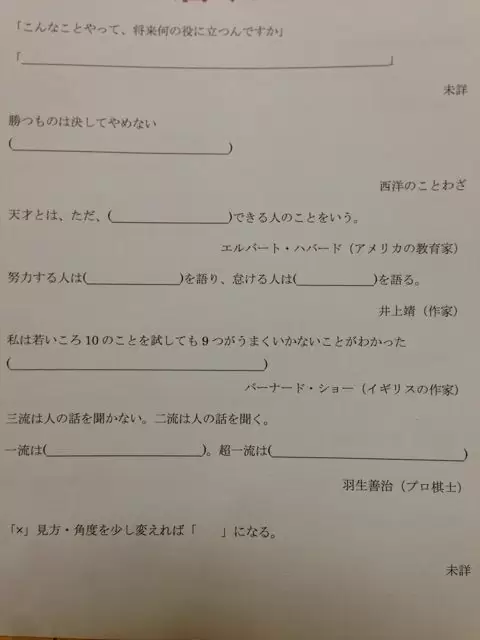 「こんなことやって、将来何の役に立つんですか」
「＿＿＿＿＿＿＿＿＿＿＿＿＿＿＿＿＿＿＿＿」
未詳
勝つものは決してやめない
(＿＿＿＿＿＿＿＿＿＿＿＿)
西洋のことわざ
天才とは、ただ、(＿＿＿＿＿＿＿)できる人のことをいう。
エルバート・ハバード（アメリカの教育家）
努力する人は(＿＿＿＿＿＿)を語り、怠ける人は(＿＿＿＿＿)を語る。
井上靖（作家）
私は若いころ10のことを試しても9つがうまくいかないことがわかった
(＿＿＿＿＿＿＿＿＿＿＿＿＿＿)
バーナード・ショー（イギリスの作家）
三流は人の話を聞かない。二流は人の話を聞く。
一流は(＿＿＿＿＿＿＿＿＿)。超一流は(＿＿＿＿＿＿＿＿＿＿＿)
羽生善治（プロ棋士）
「×」見方・角度を少し変えれば「　　」になる。
未詳